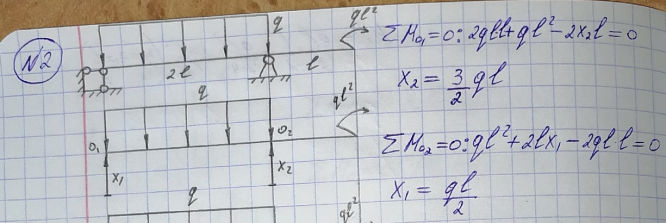 N2
q
ql²
2l
l
q
ql²
O₁
O₂
x₁
x₂
q
ql²
ΣM₀₁=0: 2qll+ql²-2x₂l=0
x₂ = 3/2 ql
ΣM₀₂=0: ql²+2lx₁-2ql l=0
x₁ = ql/2